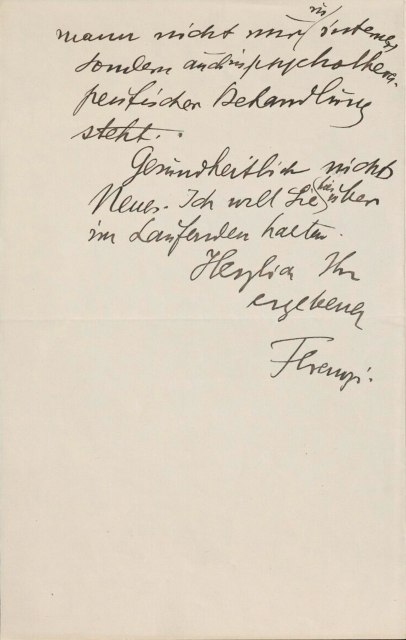 mann nicht nur in interner,
sondern auch in psychothera-
peutischer Behandlung
steht.
Gesundheitlich nichts
Neues. Ich will Sie hierüber
im Laufenden halten.
Herzlich Ihr
ergebener
Ferenczi.